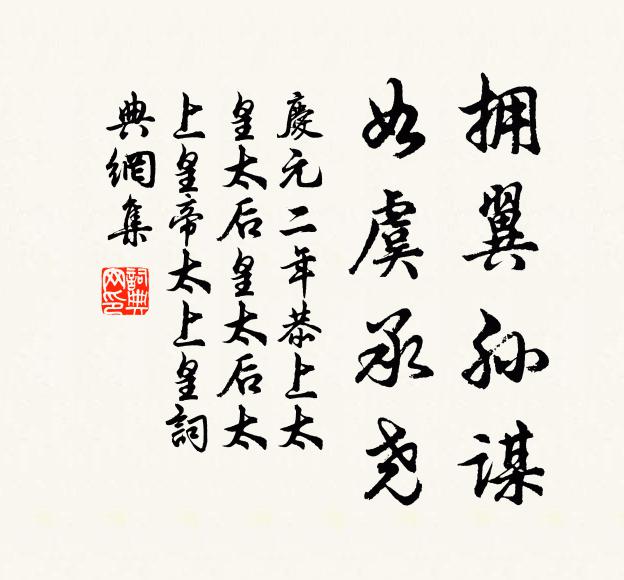 拥翼孙谋
如虞承尧
慶元二年恭上太
皇太后皇太后太
上皇帝太上皇詞
典網集
詞典网印